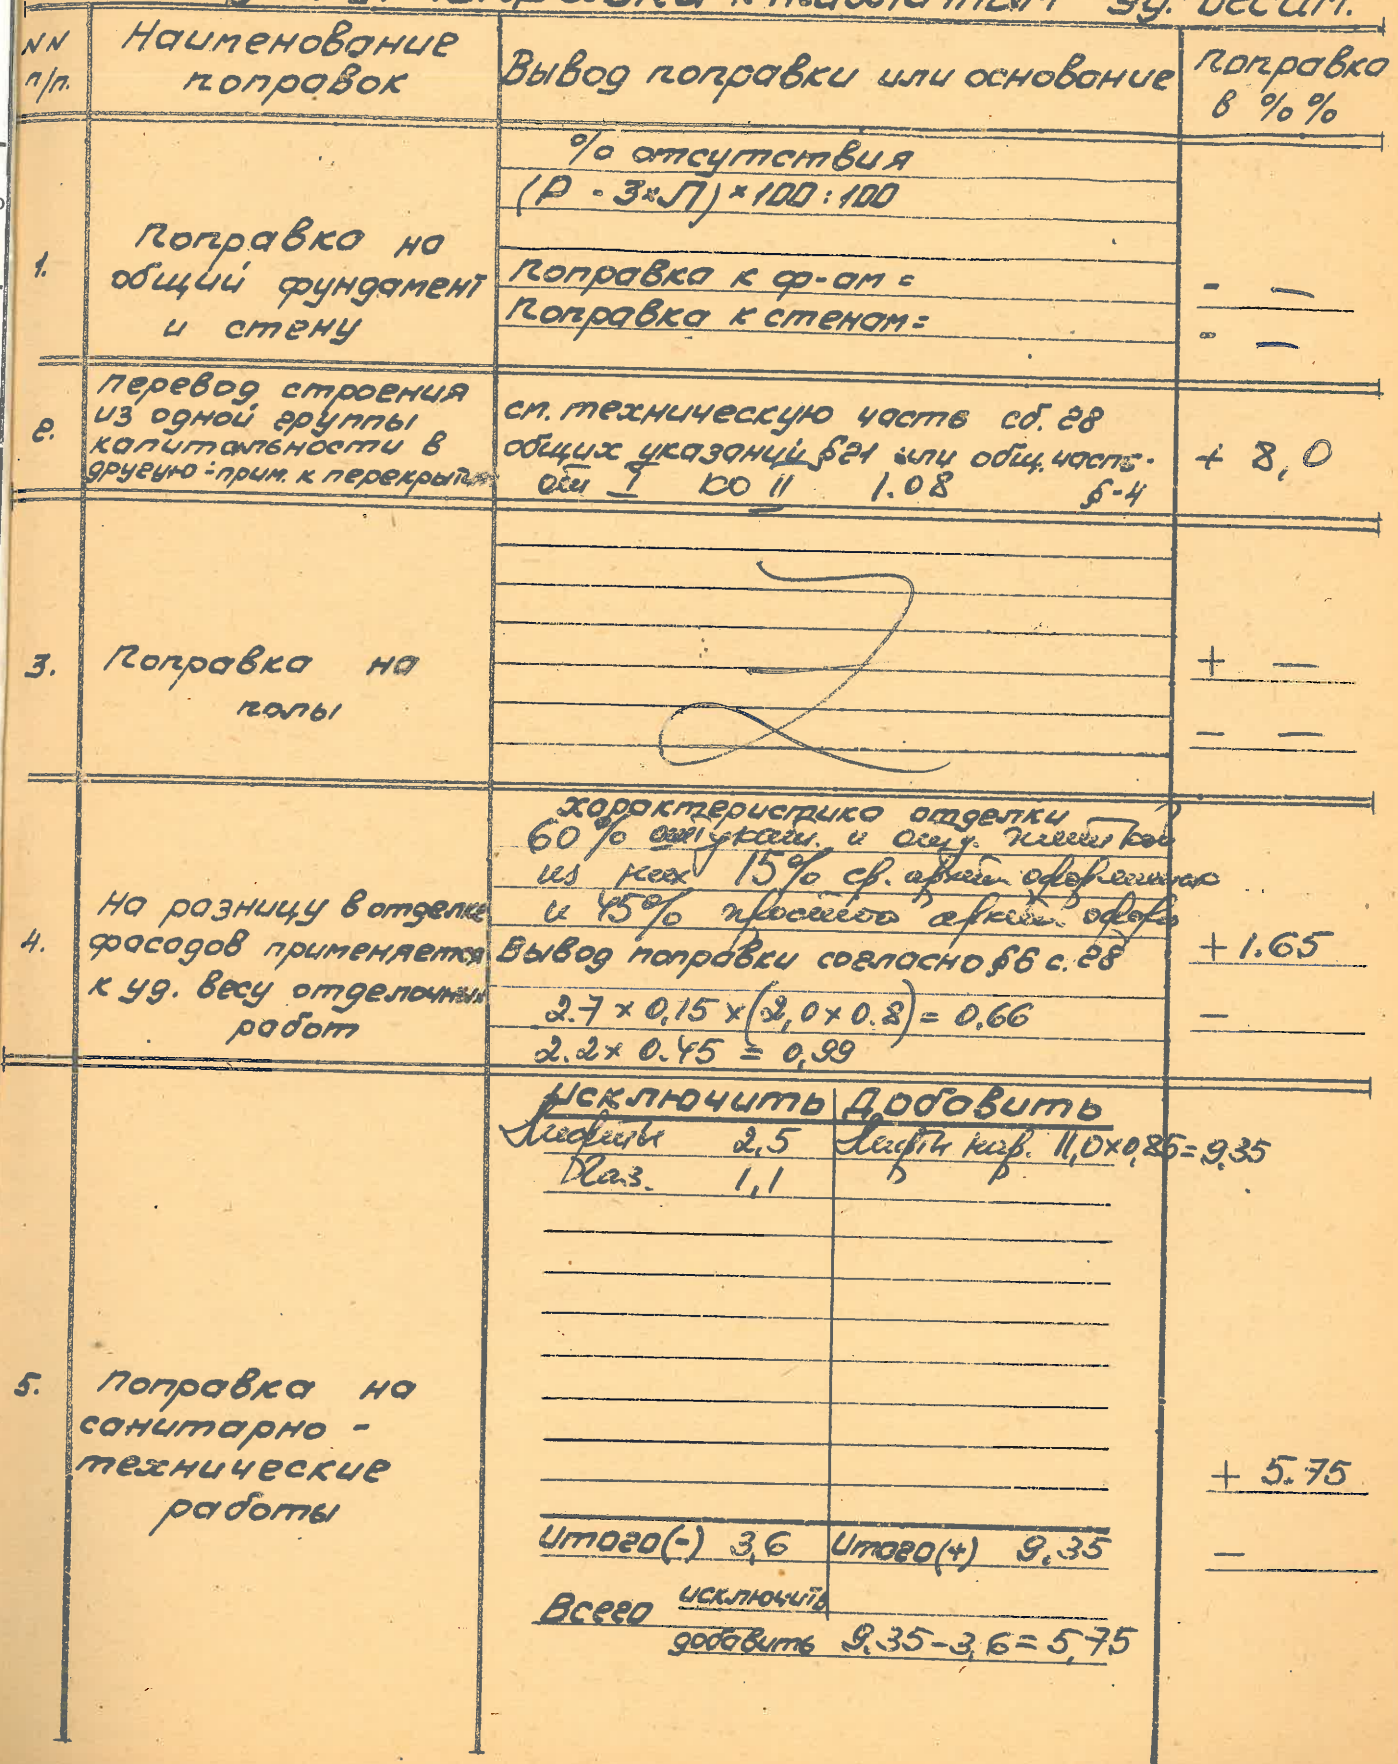 поправка к таблицам уд. весам.
NN п/п.
Наименование поправок
Вывод поправки или основание
Поправка в %%
% отсутствия
(Р - 3×Л) × 100 : 100
1.
Поправка на
общий фундамент
и стену
Поправка к ф-ам =
- —
Поправка к стенам =
- —
2.
перевод строения
из одной группы
капитальности в
другую - прим. к перекрытия
сп. техническую часть сб. 28
общих указаний §21 или общ. часть.
от I ко II 1.08 §-4
+ 8,0
3.
Поправка на
полы
+ —
- —
4.
на разницу в отделке
фасадов применяется
к уд. весу отделочных
работ
характеристика отделки
60% штукат. и плиткой
из них 15% ср. архит.
и 45% простого архит. оформ
Вывод поправки согласно §6 с. 28
2.7 × 0,15 × (2,0 × 0.8) = 0.66
2.2 × 0.45 = 0,99
+1.65
-
5.
поправка на
санитарно -
технические
работы
исключить | добавить
Лифты 2,5 Лифты 11,0×0,85=9,35
Газ. 1,1
Итого(-) 3,6 Итого(+) 9.35
Всего исключить
добавить 9.35-3,6=5,75
+ 5.75
-